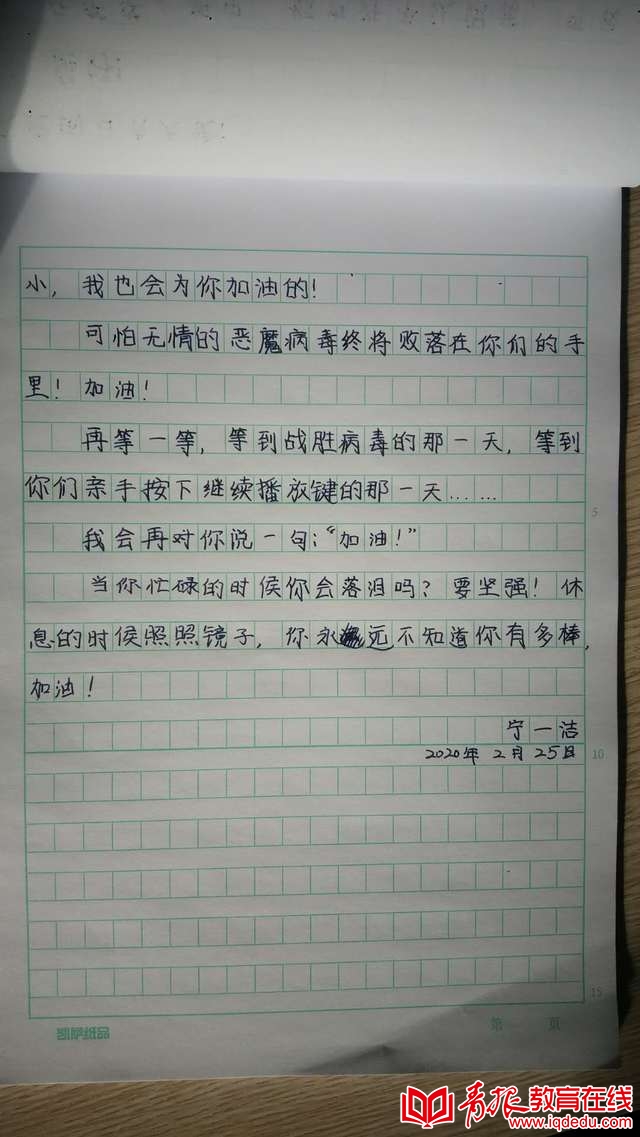 小，我也会为你加油的！
可怕无情的恶魔病毒终将败落在你们的手
里！加油！
再等一等，等到战胜病毒的那一天，等到
你们亲手按下继续播放键的那一天……
5
我会再对你说一句：“加油！”
当你忙碌的时侯你会落泪吗？要坚强！休
息的时侯照照镜子，你永远不知道你有多棒，
加油！
宁一洁
2020年2月25日
10
15
第 页
青报教育在线
www.iqdedu.com